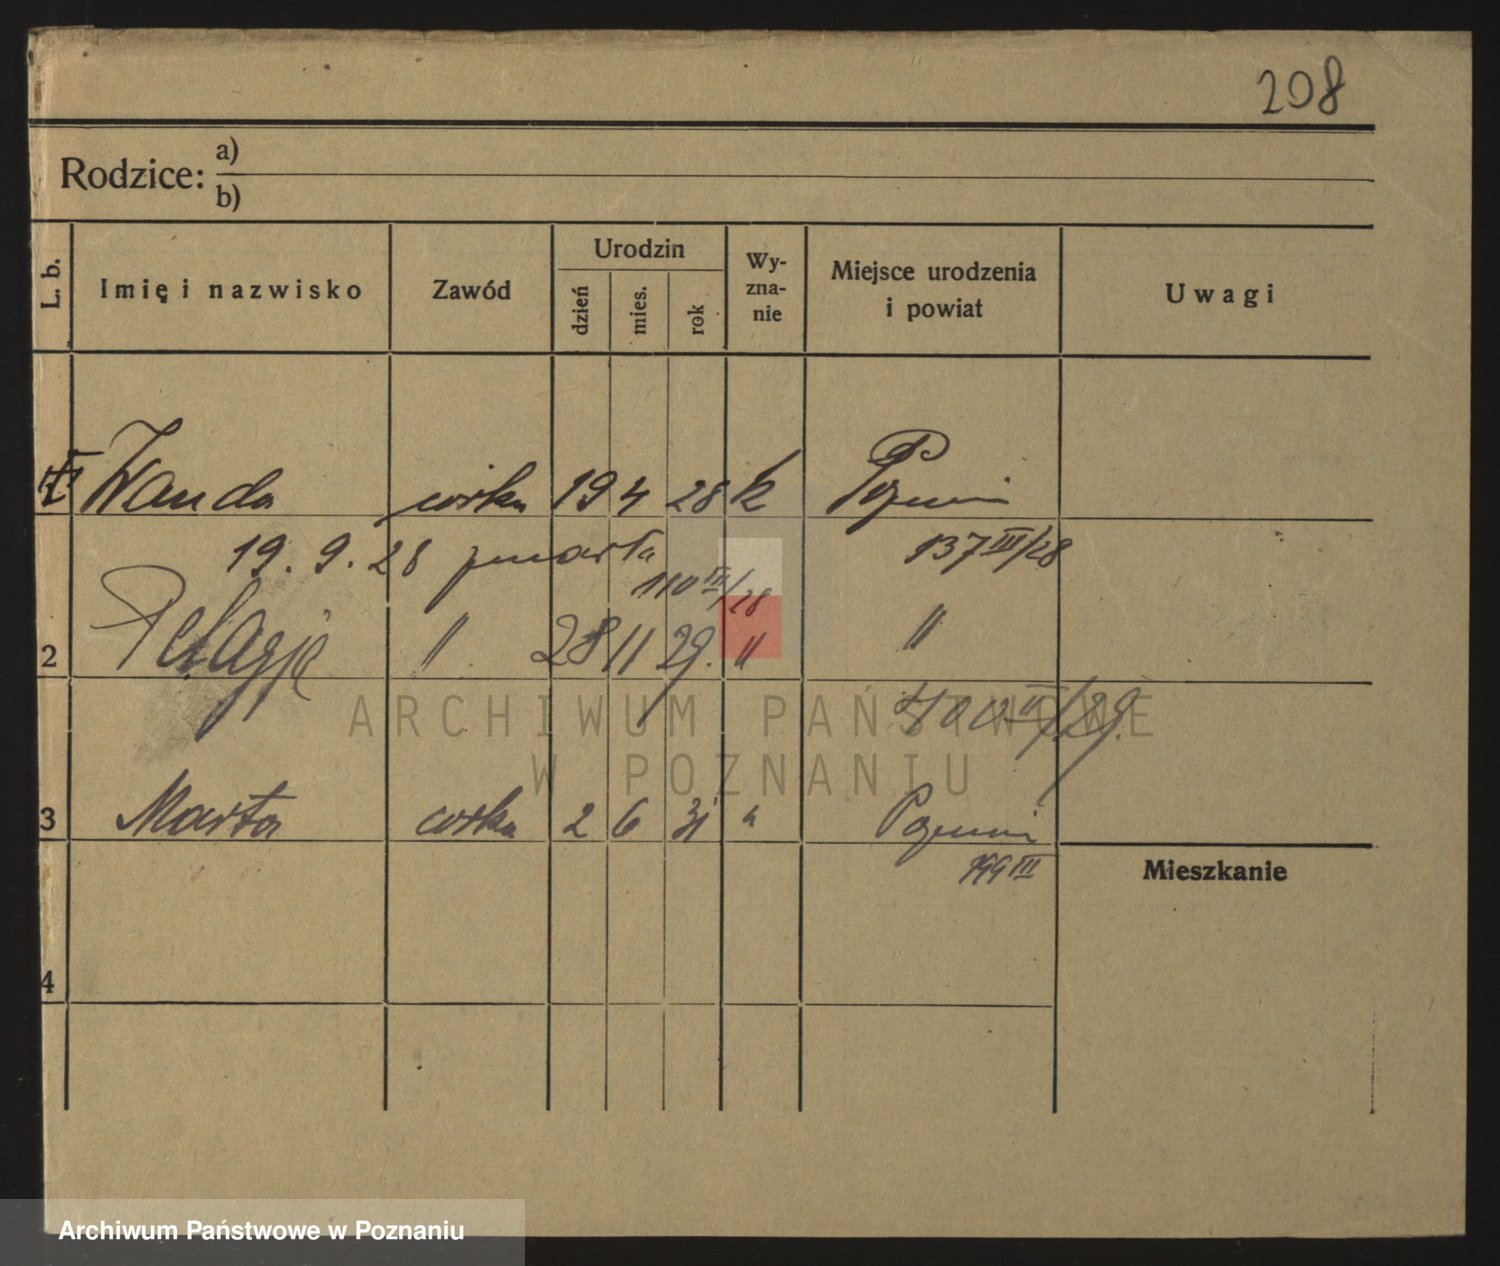 208
Rodzice: a)
b)
L. b. Imię i nazwisko Zawód Urodzin dzień mies. rok Wy-zna-nie Miejsce urodzenia i powiat Uwagi
1 Wanda córka 19 4 28 k Poznań
19. 9. 28 zmarła 137 III/28
110 III/28
2 Pelagja " 28 11 29. " "
400 II/29.
ARCHIWUM PAŃSTWOWE
W POZNANIU
3 Marta córka 2 6 31 " Poznań
Mieszkanie
4
Archiwum Państwowe w Poznaniu